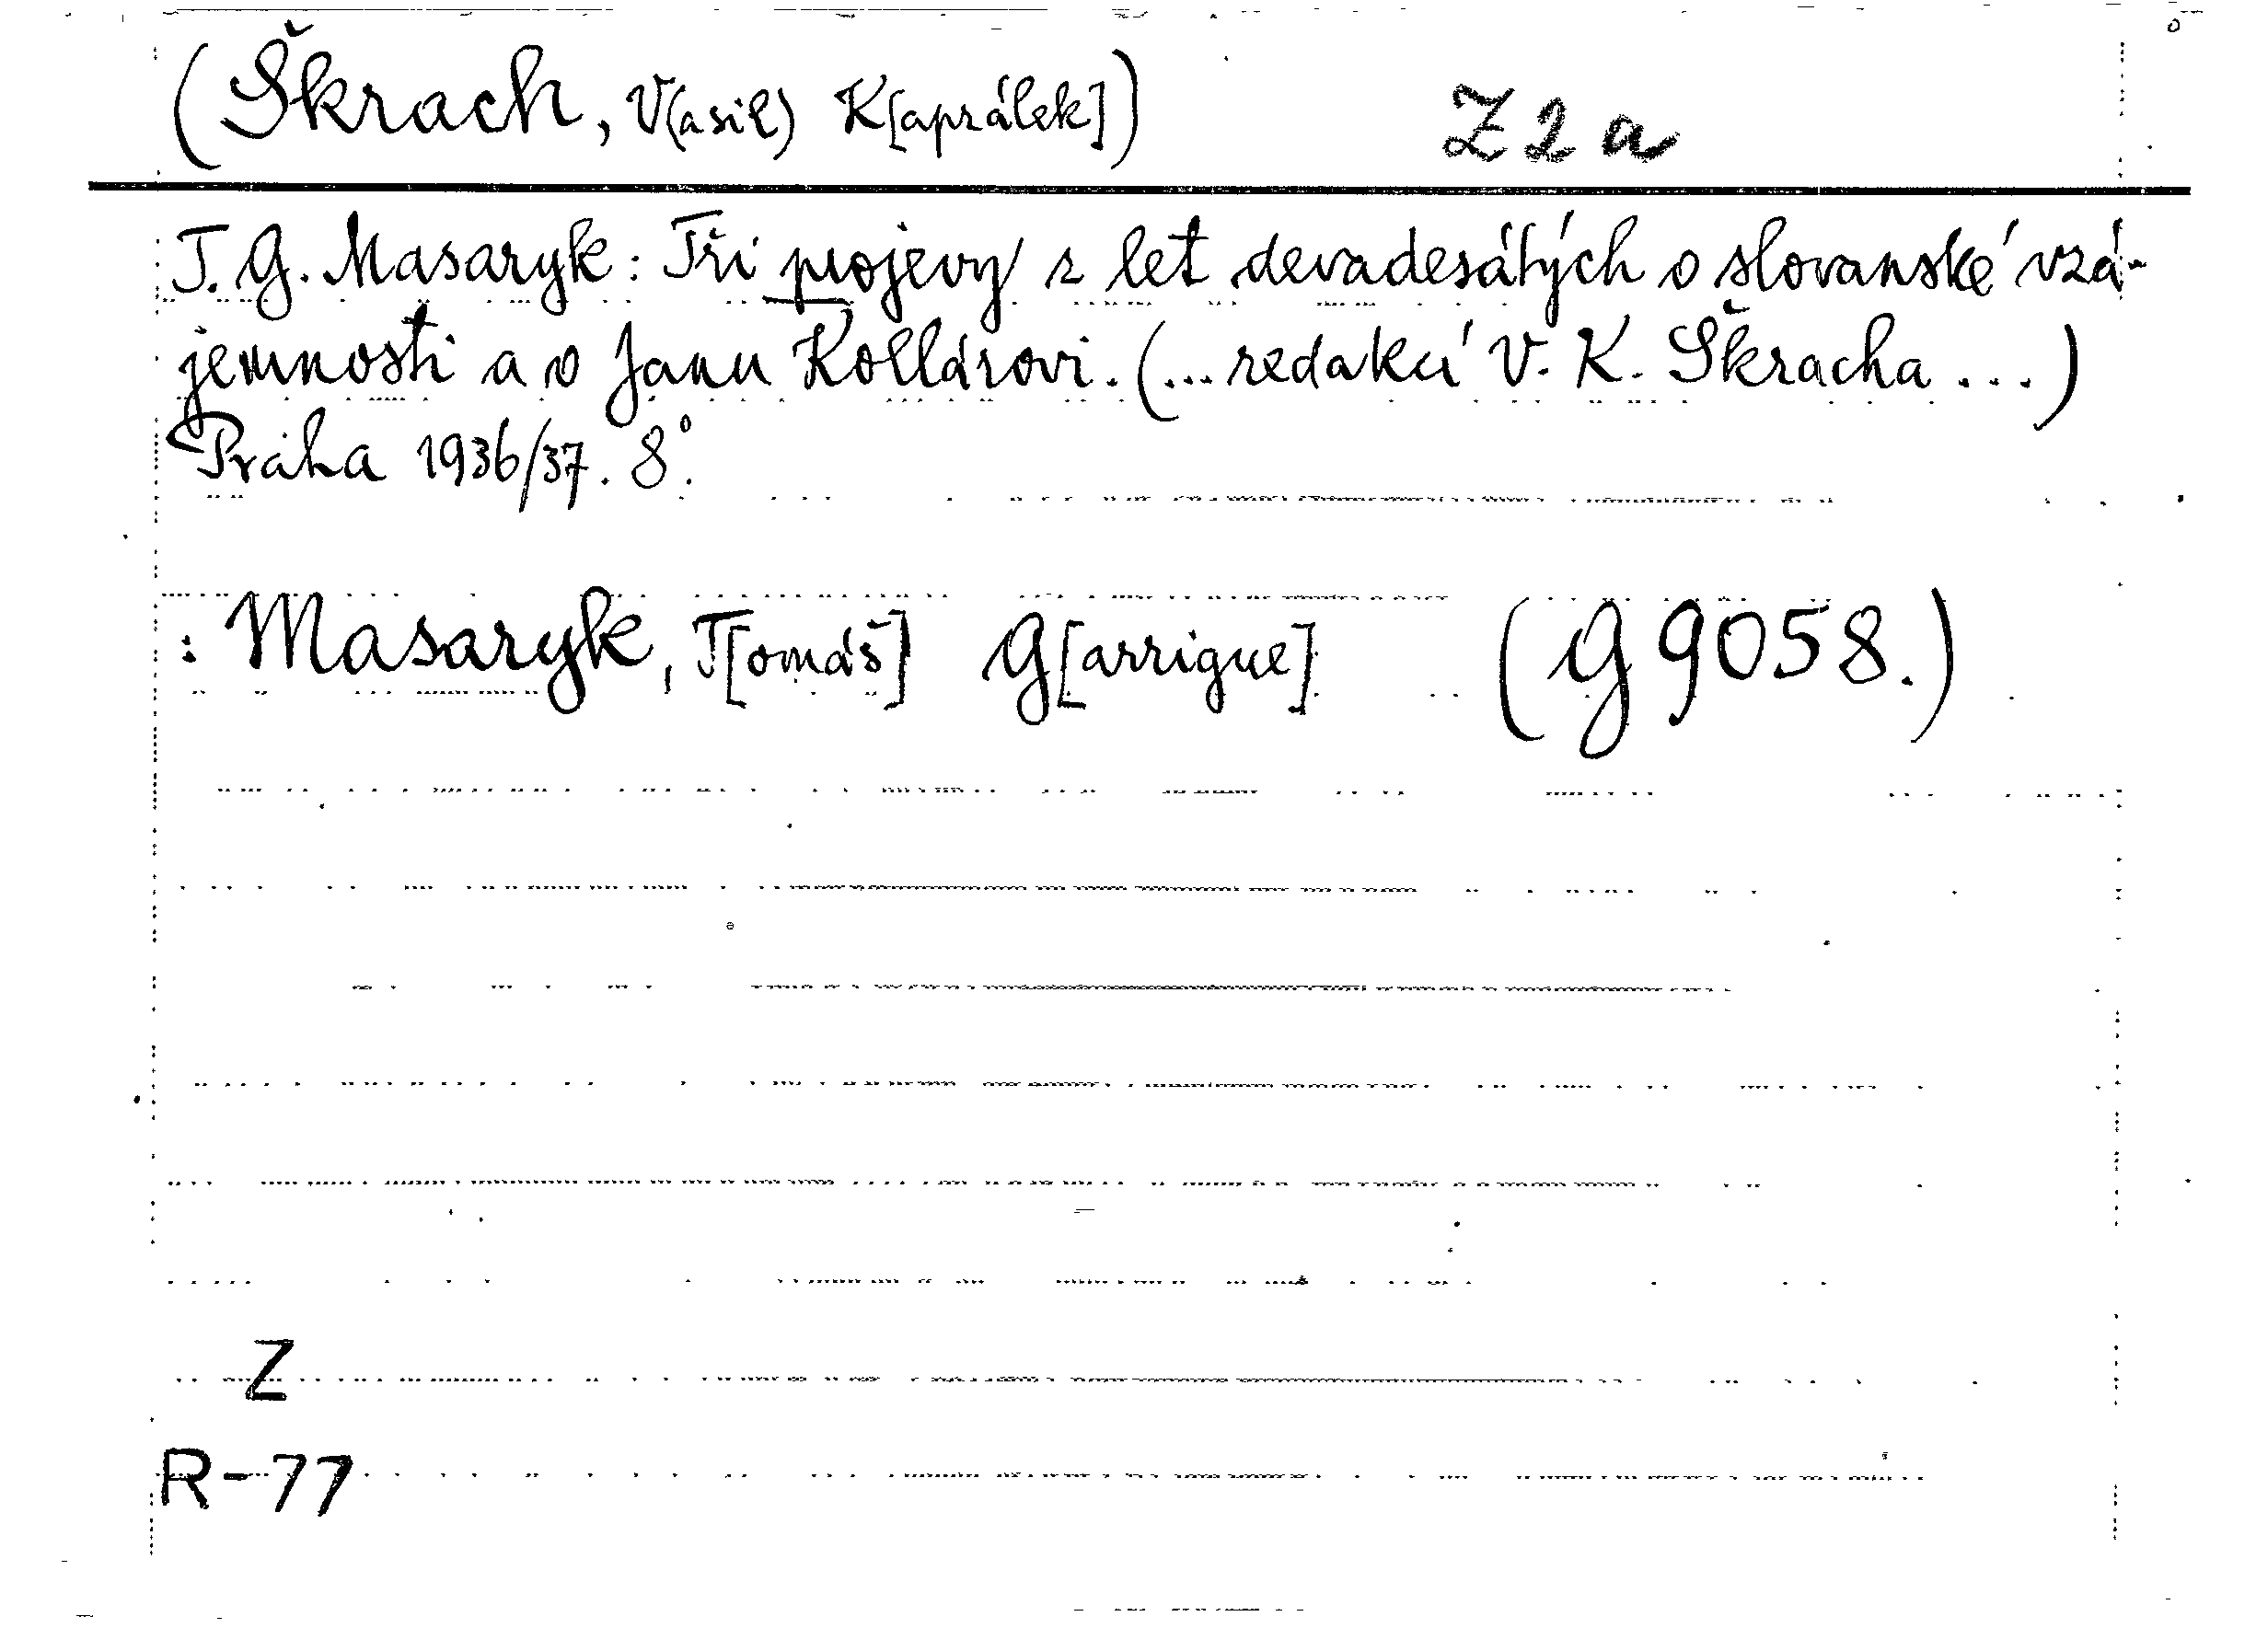 (Škrach, V(asil) K[aprálek]) Z 2 a
T. G. Masaryk: Tři projevy z let devadesátých o slovanské vzá-
jemnosti a o Janu Kollárovi. (... redakcí V. K. Škracha ...)
Praha 1936/37. 8°.
: Masaryk, T[omáš] G[arrigue] (G 9058.)
Z
R-77